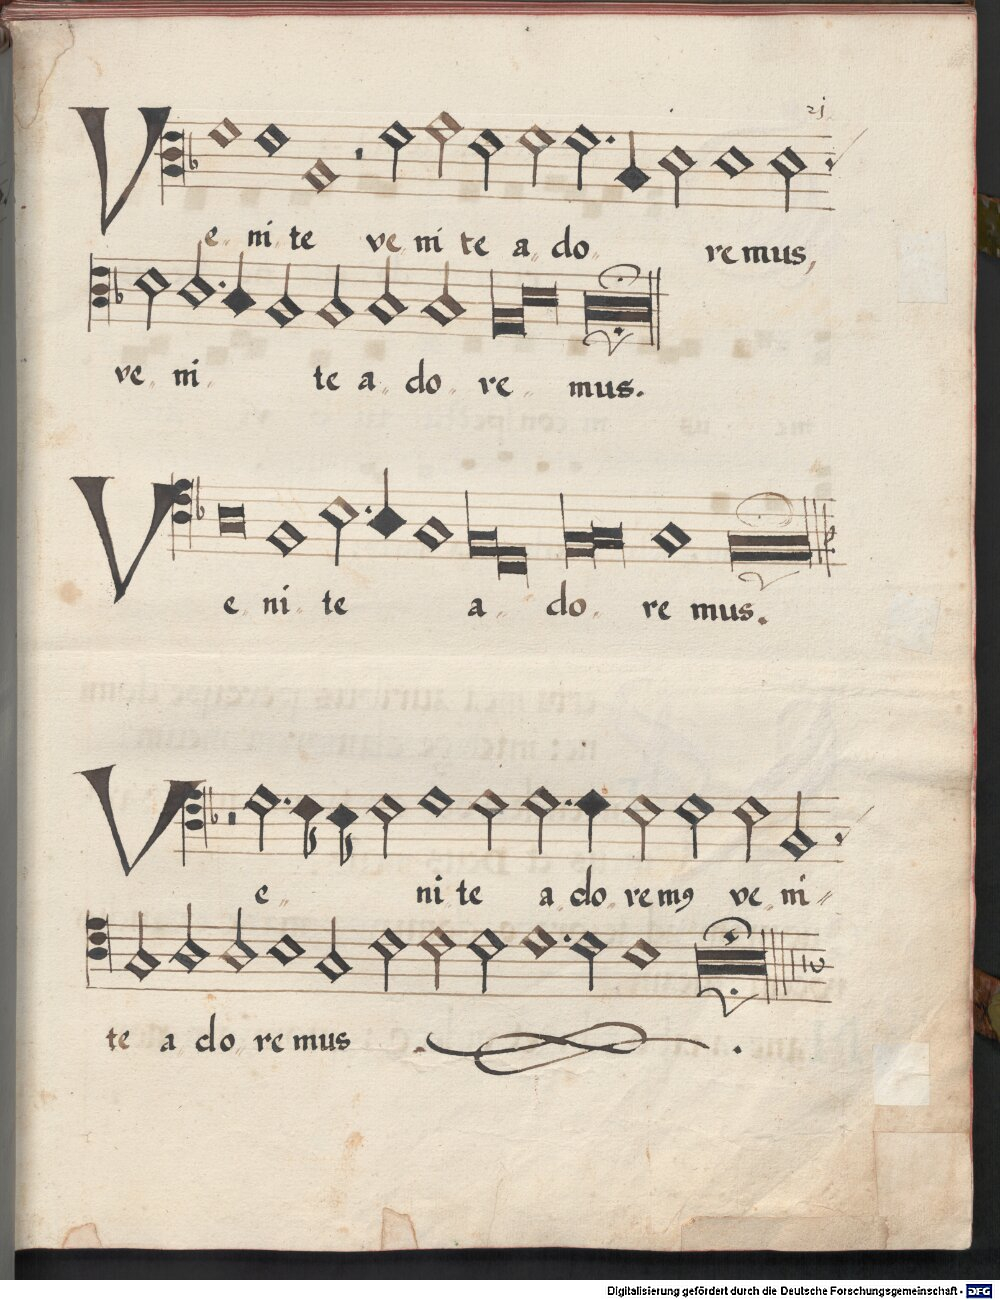 21
Ve ni te ve ni te a do re mus,
ve ni te a do re mus.
Ve ni te a do re mus.
Ve ni te a do remꝯ ve ni
te a do re mus
Digitalisierung gefördert durch die Deutsche Forschungsgemeinschaft - DFG